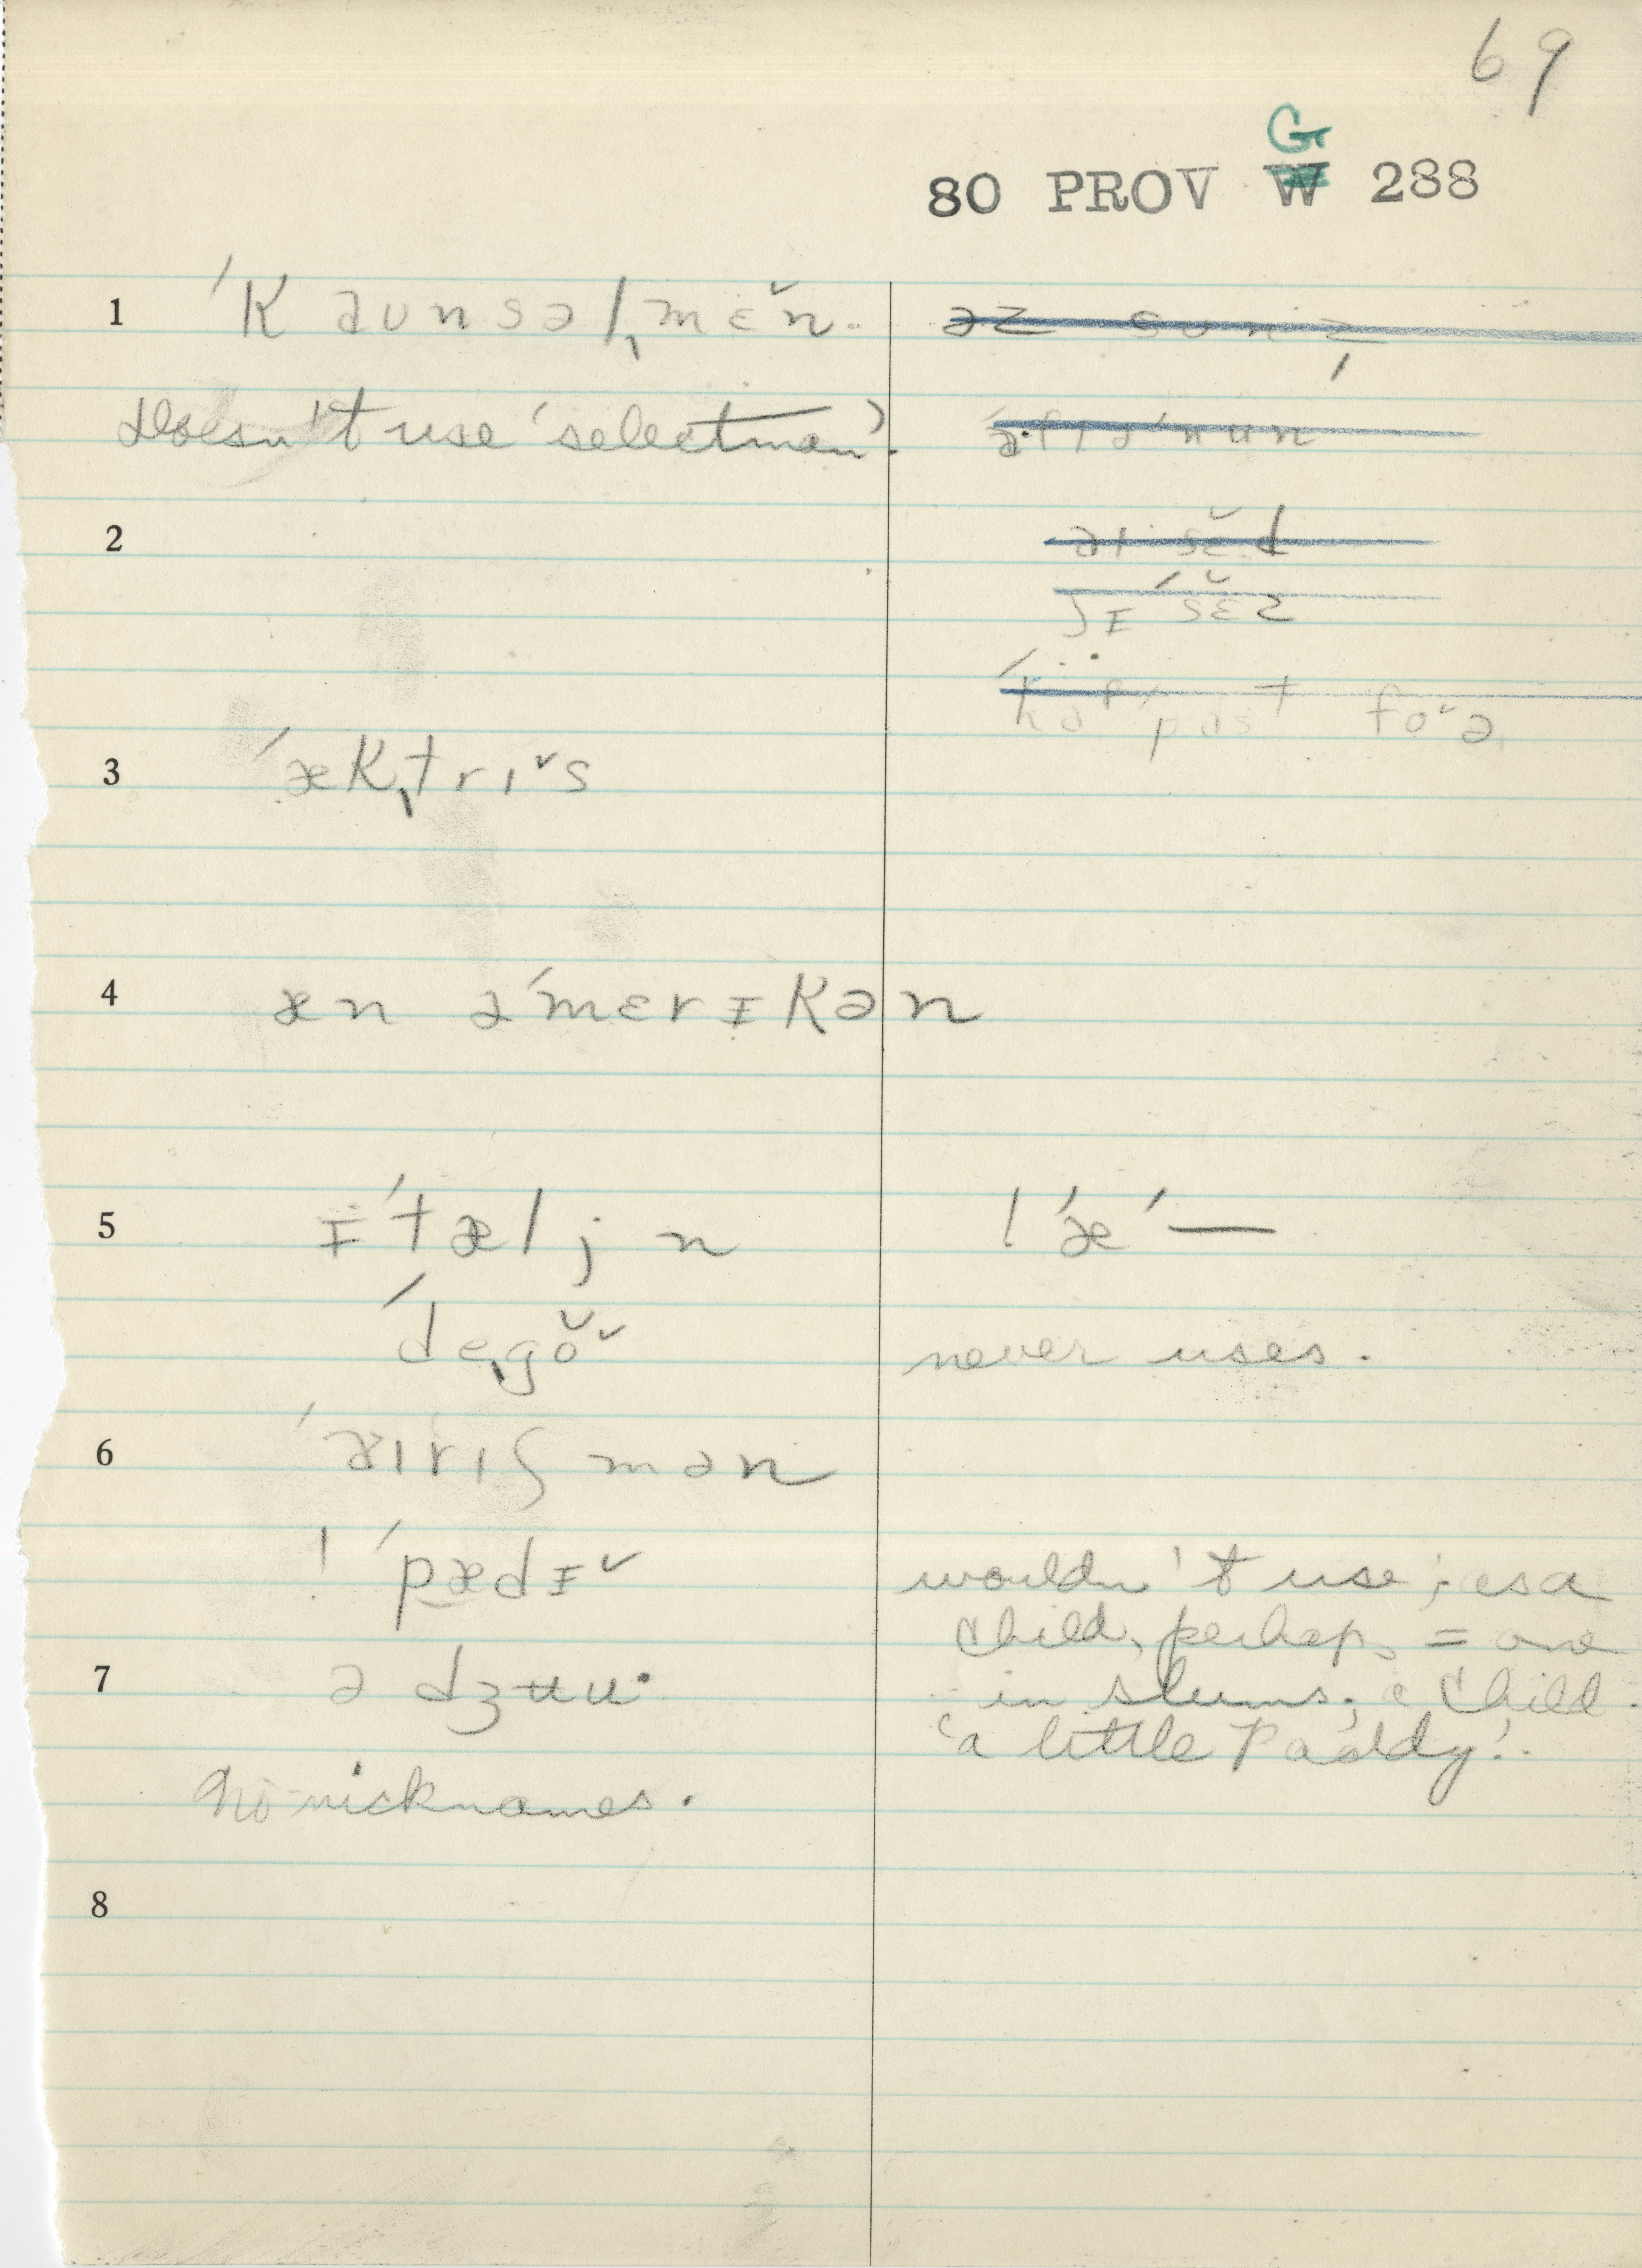 69
G
80 PROV W 288
1 ˈkaʊnsəlˌmɛ̆n.
Doesn't use 'selectman'.
2
aɪ sĕd
ʃɪ ˈsɛ̆z
3 ˈækˌtrɪˇs
4 æn əˈmerɪkən
5 ɪˈtæljn
! ˈæˈ—
ˈdeˌgŏˇ
never uses.
6 ˈaɪrɪʃmən
! ˈpædɪˇ
wouldn't use; as a
child, perhaps = one
in slums; a child.
'a little Paddy'.
7 ə dʒʉu·
No nicknames.
8